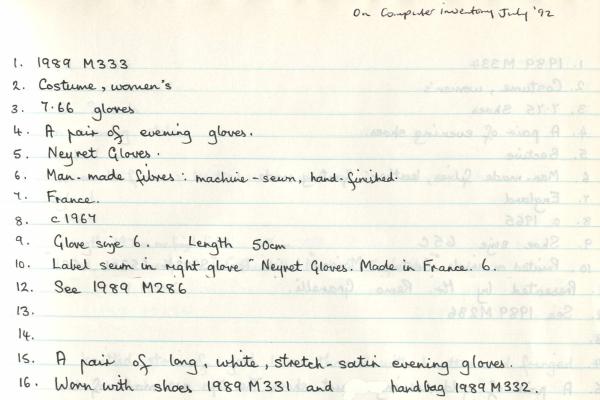 On Computer inventory July '92
1. 1989 M333
2. Costume, women's
3. 7.66 gloves
4. A pair of evening gloves.
5. Neyret Gloves.
6. Man-made fibres: machine-sewn, hand-finished.
7. France.
8. c1967
9. Glove size 6. Length 50cm
10. Label sewn in right glove "Neyret Gloves. Made in France. 6.
12. See 1989 M286
13.
14.
15. A pair of long, white, stretch-satin evening gloves.
16. Worn with shoes 1989 M331 and handbag 1989 M332.